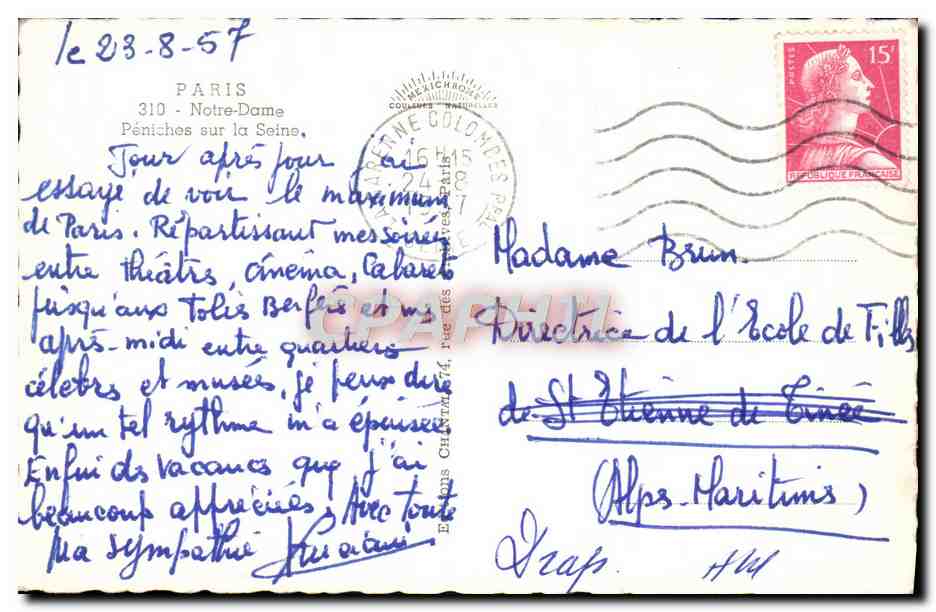 le 23-8-57
PARIS
310 - Notre-Dame
Péniches sur la Seine.
Jour après jour j'ai
essayé de voir le maximum
de Paris. Répartissant mes soirées
entre théâtre, cinéma, Cabarets
jusqu'aux Folies Bergère et mes
après-midi entre quartiers
célèbres et musées, je peux dire
qu'un tel rythme m'a épuisée.
Enfin des vacances que j'ai
beaucoup appréciées. Avec toute
Ma sympathie
MEXICHROME
COULEURS NATURELLES
LA GARENNE COLOMBES PPAL
16H15
24-8
SEINE
Editions CHANTAL, 74, rue des Archives, Paris
POSTES
15F
REPUBLIQUE FRANÇAISE
Madame Brun.
Directrice de l'Ecole de Filles
de St Etienne de Tinée
(Alpes-Maritimes)
Drap.
CPAPHIL